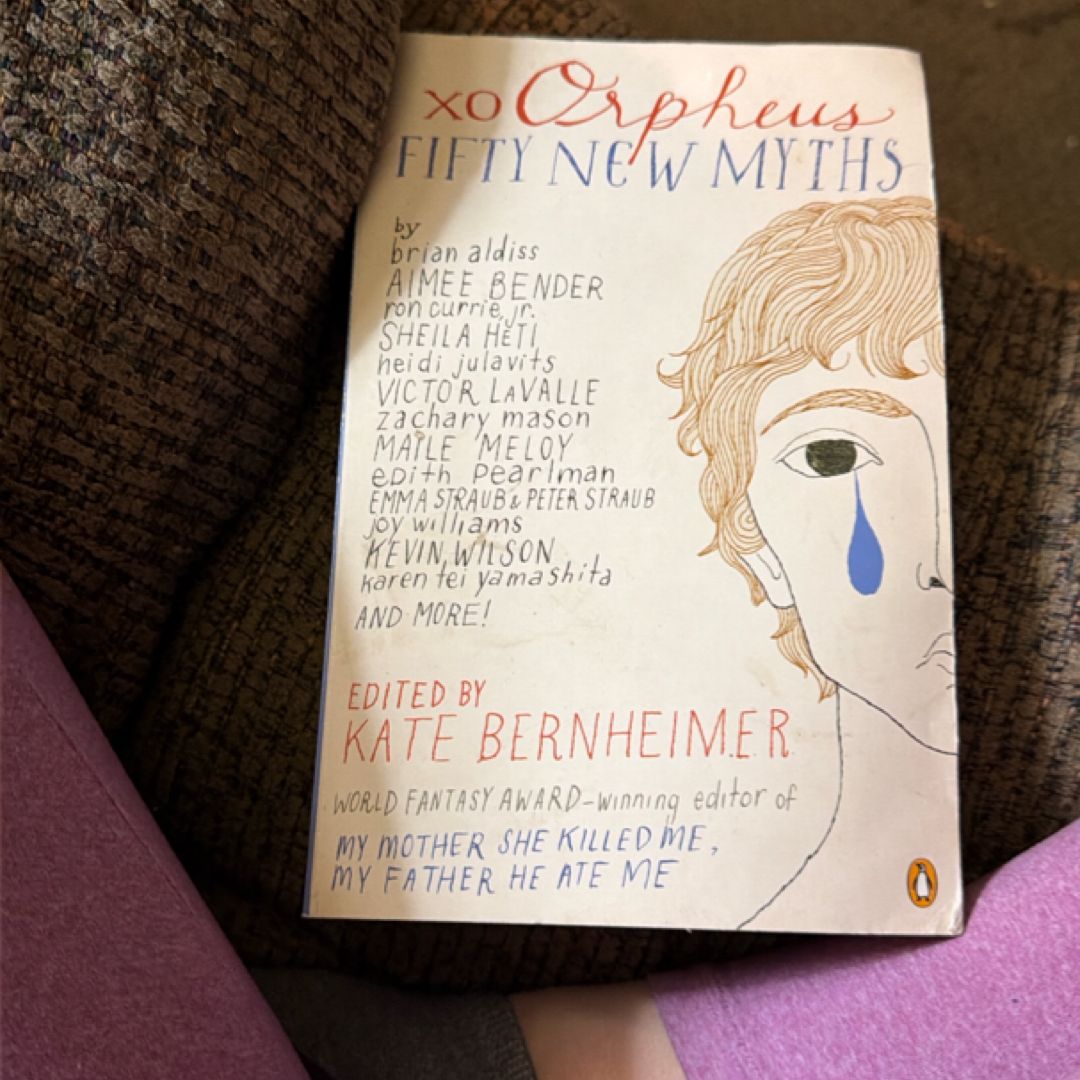 xo Orpheus
FIFTY NEW MYTHS
by
brian aldiss
AIMEE BENDER
ron currie, jr.
SHEILA HETI
heidi julavits
VICTOR LAVALLE
zachary mason
MAILE MELOY
edith pearlman
EMMA STRAUB & PETER STRAUB
joy williams
KEVIN WILSON
karen tei yamashita
AND MORE!
EDITED BY
KATE BERNHEIMER
WORLD FANTASY AWARD-winning editor of
MY MOTHER SHE KILLED ME,
MY FATHER HE ATE ME